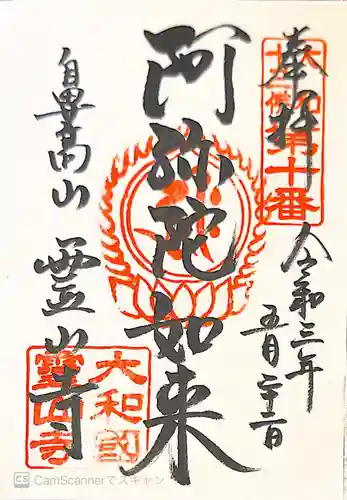 奉拝
大和
十三佛
第十番
令和三年
五月二十二日
阿弥陀如来
鼻高山
霊山寺
大和國
靈山寺
CS CamScannerでスキャン